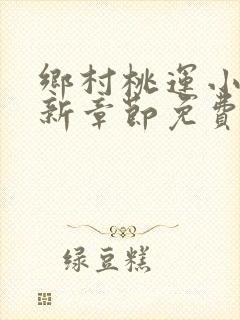 鄉村桃運小
新章節免費
绿豆糕